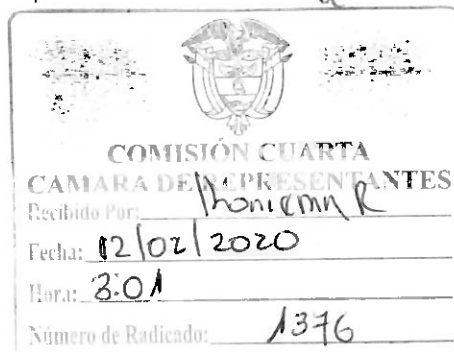 COMISIÓN CUARTA
CAMARA DE REPRESENTANTES
Recibido Por: R
Fecha: 12/02/2020
Hora: 3:01
Número de Radicado: 1376